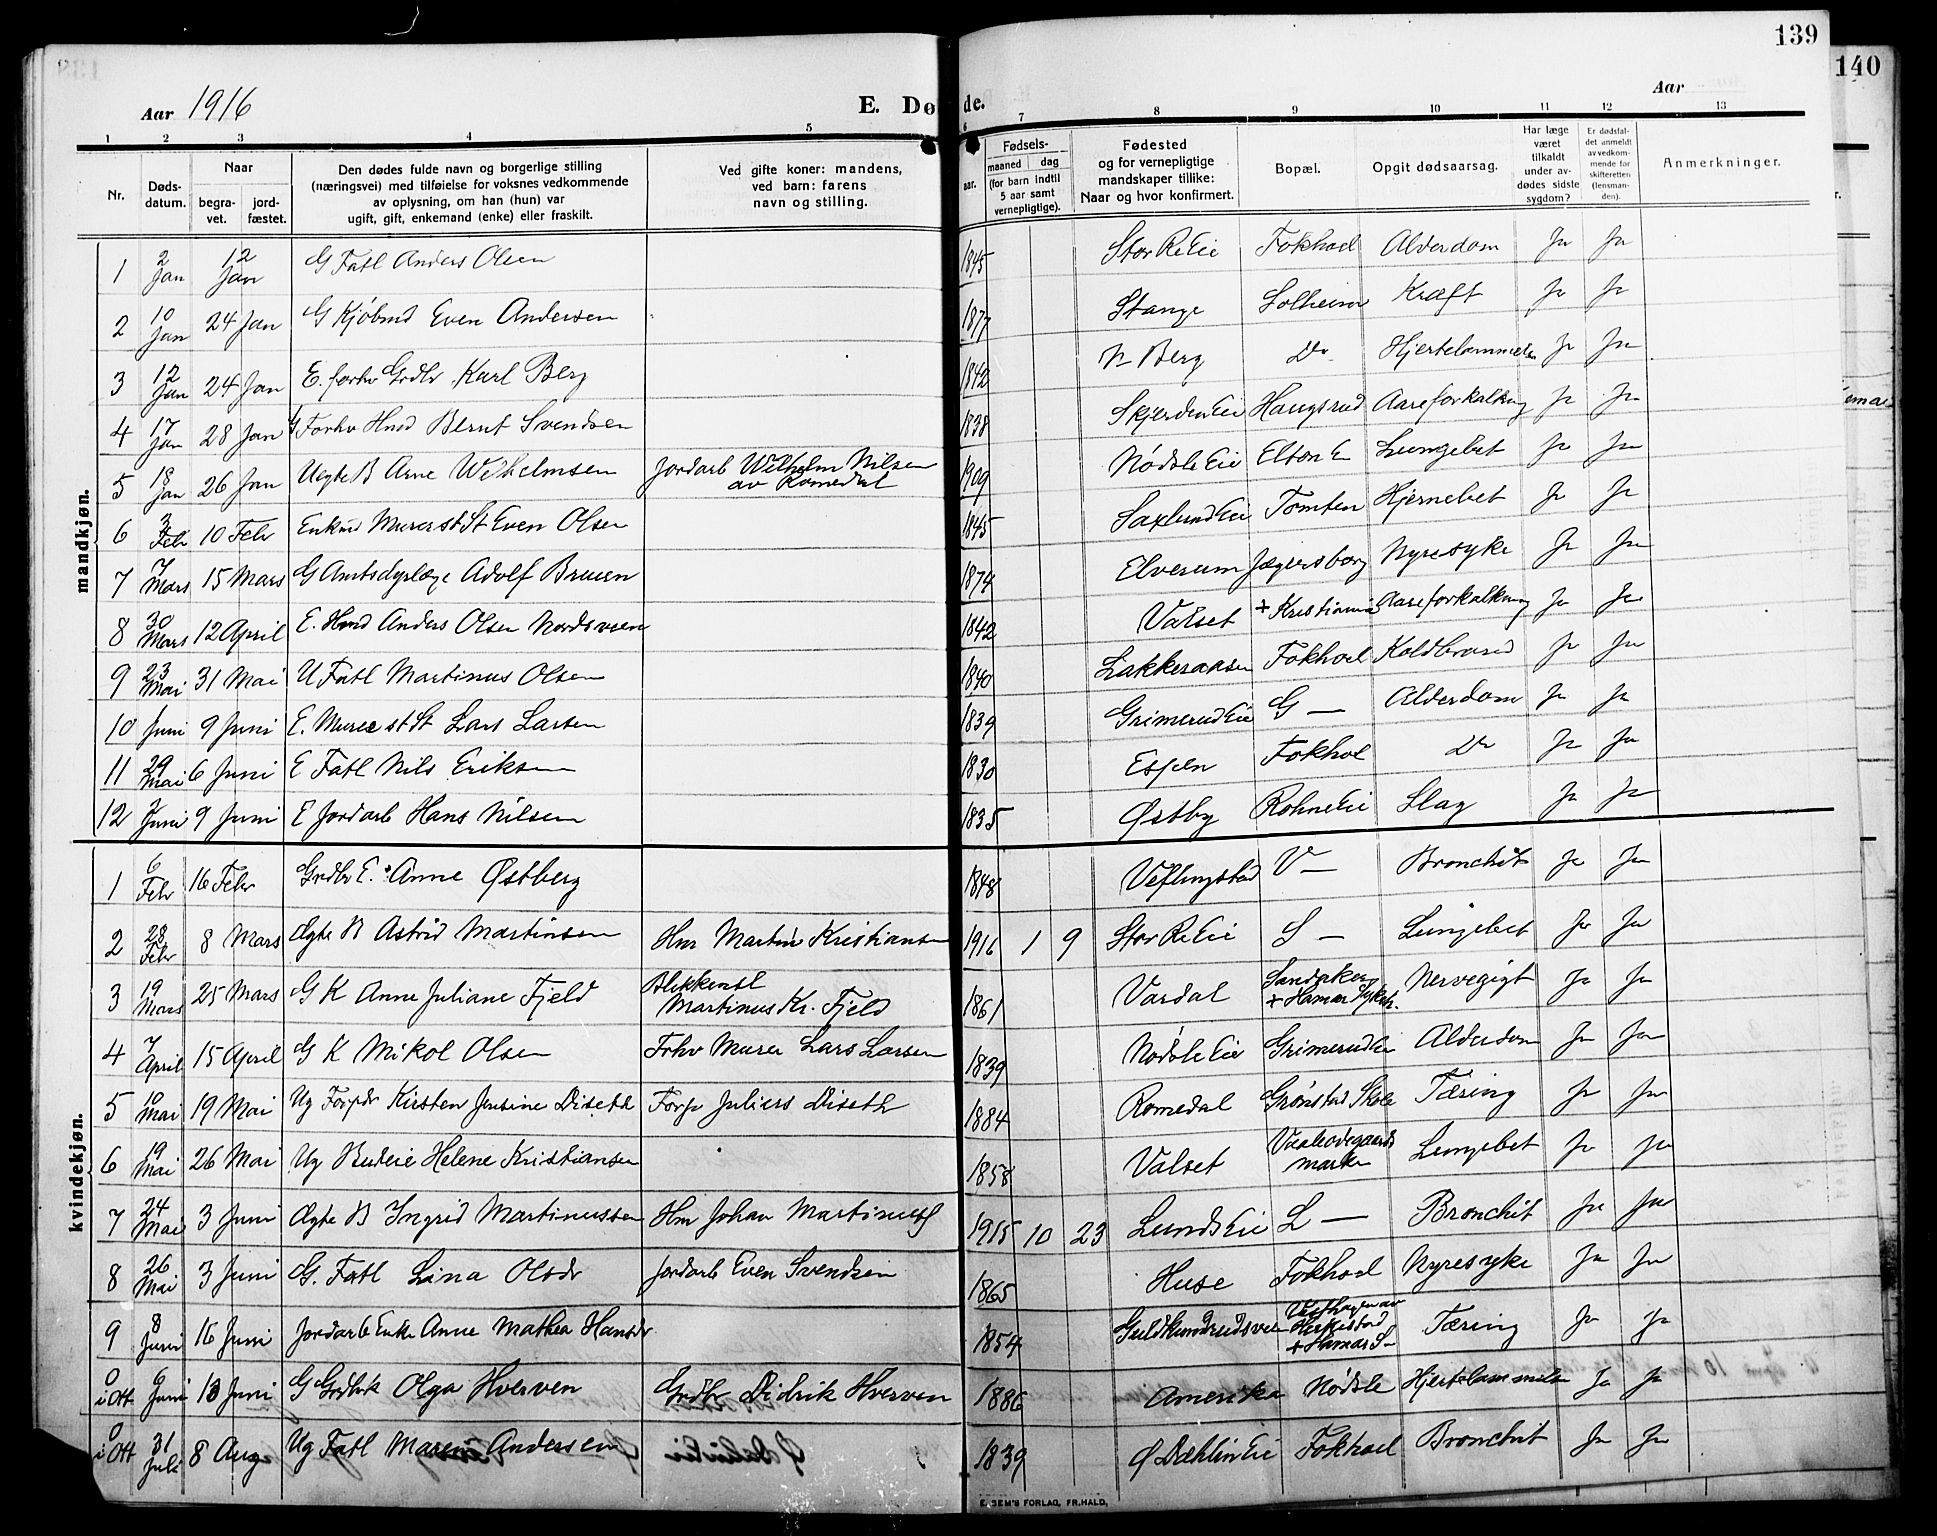 139
140
Aar 1916
E. Dø de.
Aar
1 2 3 4 5 6 7 8 9 10 11 12 13
Nr.
Døds-
datum.
Naar
begra-
vet.
jord-
fæstet.
Den dødes fulde navn og borgerlige stilling
(næringsvei) med tilføielse for voksnes vedkommende
av oplysning, om han (hun) var
ugift, gift, enkemand (enke) eller fraskilt.
Ved gifte koner: mandens,
ved barn: farens
navn og stilling.
aar.
Fødsels-
maaned dag
(for barn indtil
5 aar samt
vernepligtige).
Fødested
og for vernepligtige
mandskaper tillike:
Naar og hvor konfirmert.
Bopæl.
Opgit dødsaarsag.
Har læge
været
tilkaldt
under av-
dødes sidste
sygdom?
Er dødsfal-
det anmeldt
av vedkom-
mende for
skifteretten
(lensman-
den).
Anmerkninger.
mandkjøn.
1 2 Jan 12 Jan G Fatl Anders Olsen 1845 Stor Re Eie Fokhoel Alderdom Ja Ja
2 10 Jan 24 Jan G Kjøbmd Even Andersen 1877 Stange Solheim Kræft Ja Ja
3 12 Jan 24 Jan E. forhv Grdbr Karl Berg 1842 N Berg Do Hjertelammelse Ja Ja
4 17 Jan 28 Jan G Forhv Hmd Bernt Svendsen 1838 Skjerden Eie Haugsrud Aareforkalkning Ja Ja
5 18 Jan 26 Jan Uegte B Arne Wilhelmsen Jordarb Wilhelm Nilsen av Romedal 1909 Nødsle Eie Elton E Lungebet Ja Ja
6 3 Febr 10 Febr Enkmd Murer st St Even Olsen 1845 Saxlund Eie Tomten Hjernebet Ja Ja
7 7 Mars 15 Mars G Amtsdyrlæge Adolf Bruun 1874 Elverum Jægersborg Nyresyke Ja Ja
8 30 Mars 12 April E. Hmd Anders Olsen Nordsveen 1842 Valset + Kristiania Aareforkalkning Ja Ja
9 23 Mai 31 Mai U Fatl Martinus Olsen 1840 Lakkeraasen Fokhoel Koldbrand Ja Ja
10 Juni 9 Juni E. Murer st St Lars Larsen 1839 Grimerud Eie G — Alderdom Ja Ja
11 29 Mai 6 Juni E Fatl Nils Eriksen 1830 Espen Fokhol Do Ja Ja
12 2 Juni 9 Juni E Jordarb Hans Nilsen 1835 Østby Rohne Eie Slag Ja Ja
kvindekjøn.
1 6 Febr 16 Febr Grdbr E. Anne Østberg 1848 Veflingstad V — Bronchit Ja Ja
2 28 Febr 8 Mars Ægte B Astrid Martinsen Hm Martin Kristiansen 1916 1 9 Stor Re Eie S — Lungebet Ja Ja
3 19 Mars 25 Mars G K Anne Juliane Fjeld Blikkensl Martinus Kr. Fjeld 1861 Vardal + Hamar Sykeh. Nervegigt Ja Ja
4 7 April 15 April G K Mikol Olsen Frhv Murer Lars Larsen 1839 Nødsle Eie Grimerud Eie Alderdom Ja Ja
5 10 Mai 19 Mai Ug Forpdr Kirsten Jensine Diseth Forp Julius Diseth 1884 Romedal Grønstad Skole Tæring Ja Ja
6 19 Mai 26 Mai Ug Budeie Helene Kristiansen 1858 Valset marken Lungebet Ja Ja
7 24 Mai 3 Juni Ægte B Ingrid Martinussen Hm Johan Martinus 1915 10 23 Lunds Eie L — Bronchit Ja Ja
8 26 Mai 3 Juni G. Fatl Lina Olsdr Jordarb Even Svendsen 1865 Huse Fokhoel Nyresyke Ja Ja
9 8 Juni 16 Juni Jordarb Enke Anne Mathea Hansdr 1854 + Hamar S— Tæring Ja Ja
0 i Ott 6 Juni 13 Juni G Grdbrk Olga Hverven Grdbr Didrik Hverven 1886 Amerika Nødsle Hjertelammelse Ja Ja
0 i Ott 31 Juli 8 Aug Ug Fatl Maren Andersen 1839 Ø Dæhlin Eie Fokhoel Bronchit Ja Ja
E. SEM'S FORLAG, FR.HALD.